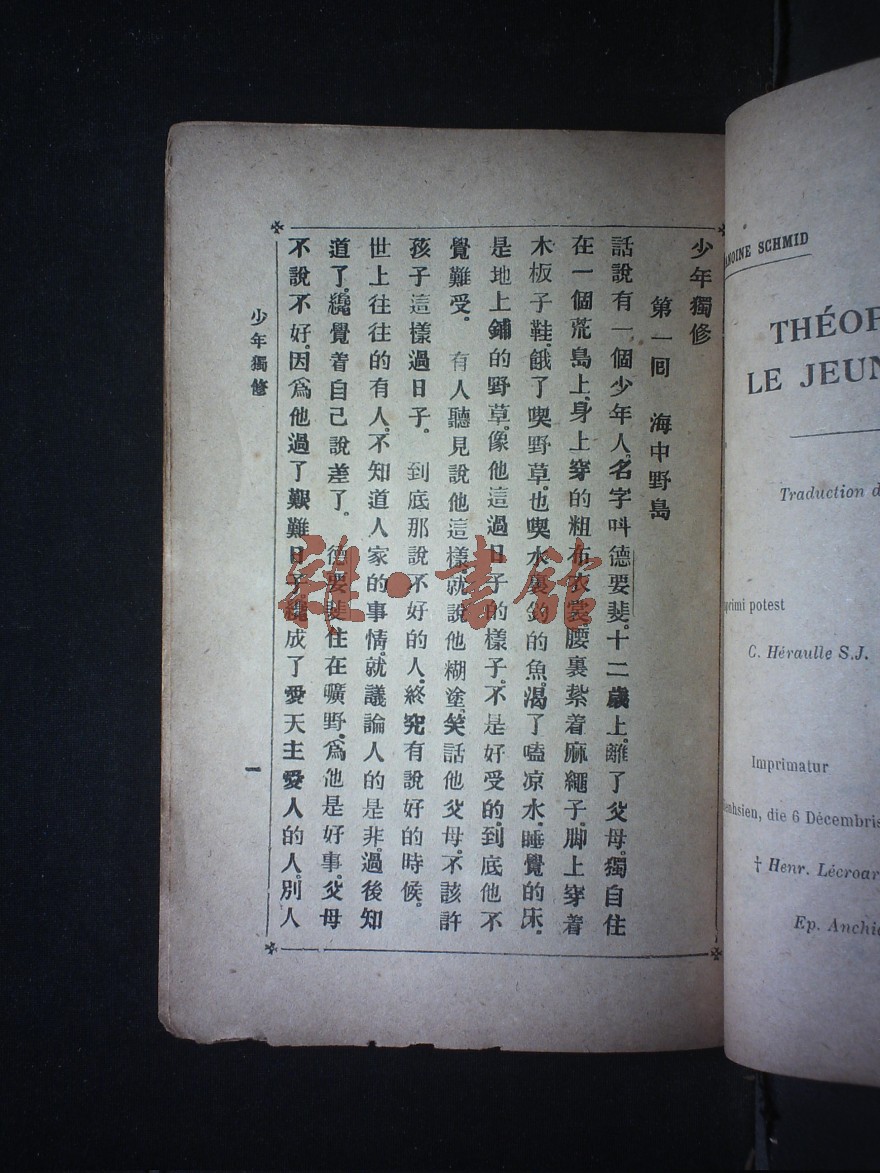 少年獨修
第一囘 海中野島
話說有一個少年人。名字呌德要斐。十二歲上。離了父母。獨自住
在一個荒島上。身上穿的粗布衣裳。腰裏紮着麻繩子。脚上穿着
木板子鞋。餓了喫野草。也喫水裏釣的魚。渴了嗑凉水。睡覺的床。
是地上鋪的野草。像他這過日子的樣子。不是好受的。到底他不
覺難受。 有人聽見說他這樣。就說他糊塗。笑話他父母。不該許
孩子這樣過日子。 到底那說不好的人。終究有說好的時候。
世上往往的有人。不知道人家的事情。就議論人的是非。過後知
道了。纔覺着自己說差了。 德要斐住在曠野。爲他是好事。父母
不說不好。因爲他過了艱難日子。纔成了愛天主愛人的人。別人
少年獨修
一
雜·書館
ANOINE SCHMID
THÉOP
LE JEUN
Traduction d
primi potest
C. Héraulle S.J.
Imprimatur
enhsien, die 6 Décembris
† Henr. Lécroar
Ep. Anchia